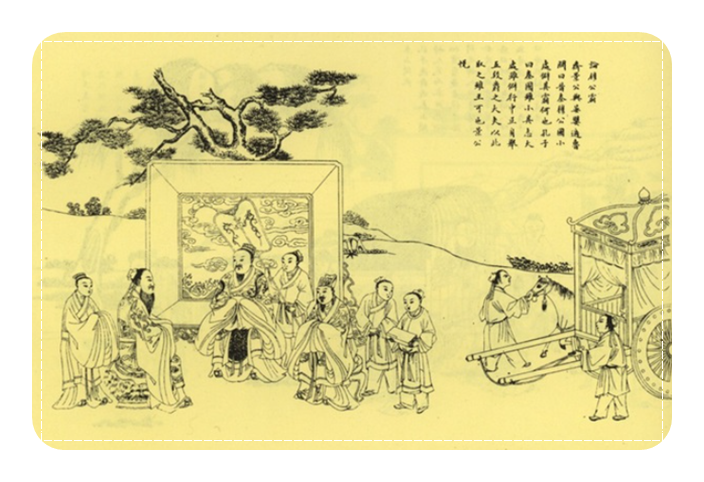 論穆公霸
齊景公與晏嬰適魯
問曰昔秦穆公國小
處僻其霸何也孔子
曰秦國雖小其志大
處雖僻行中正身舉
五羖爵之大夫以此
取之雖王可也景公
悅